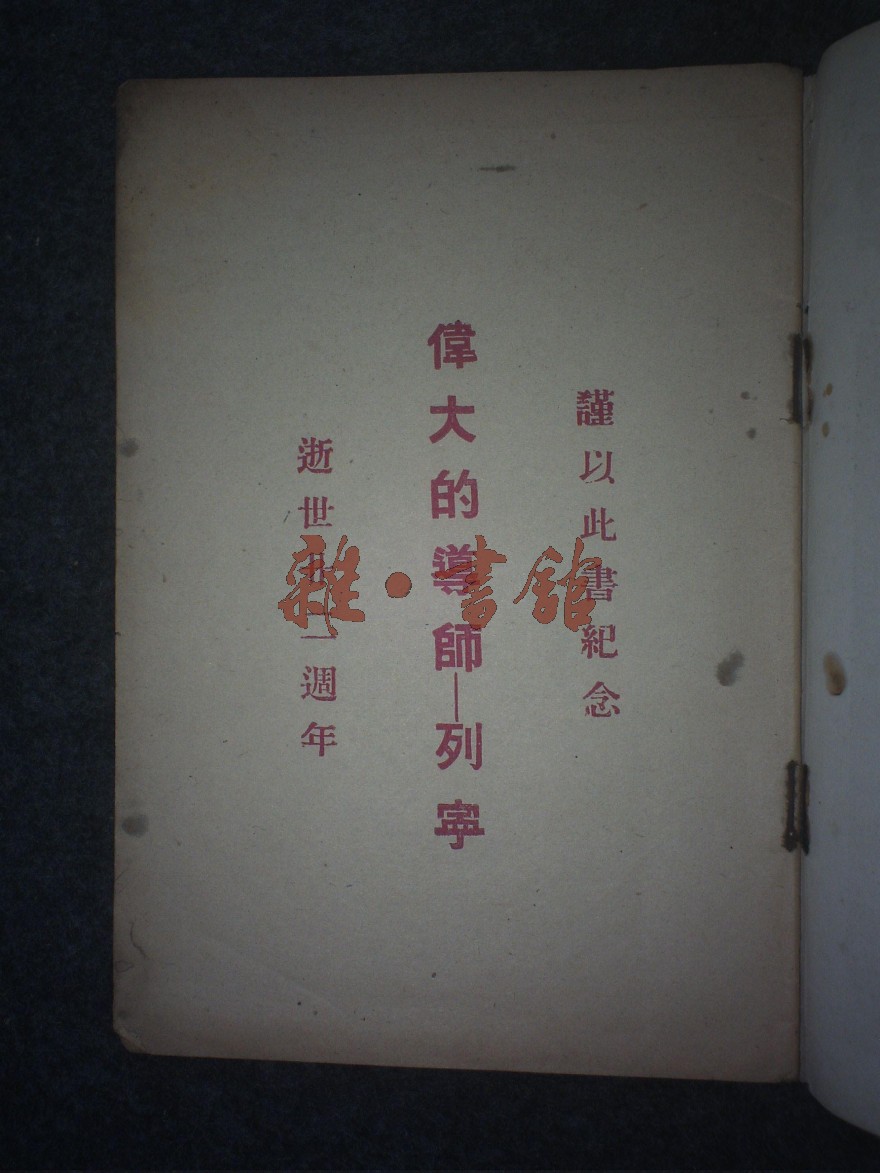 謹以此書紀念
偉大的導師—列寧
逝世廿二週年
雜·書館